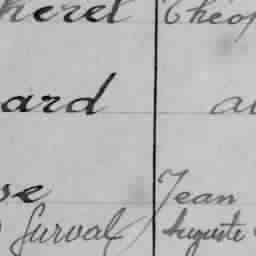 herel Théop
ard au
se Jean
Surval Auguste